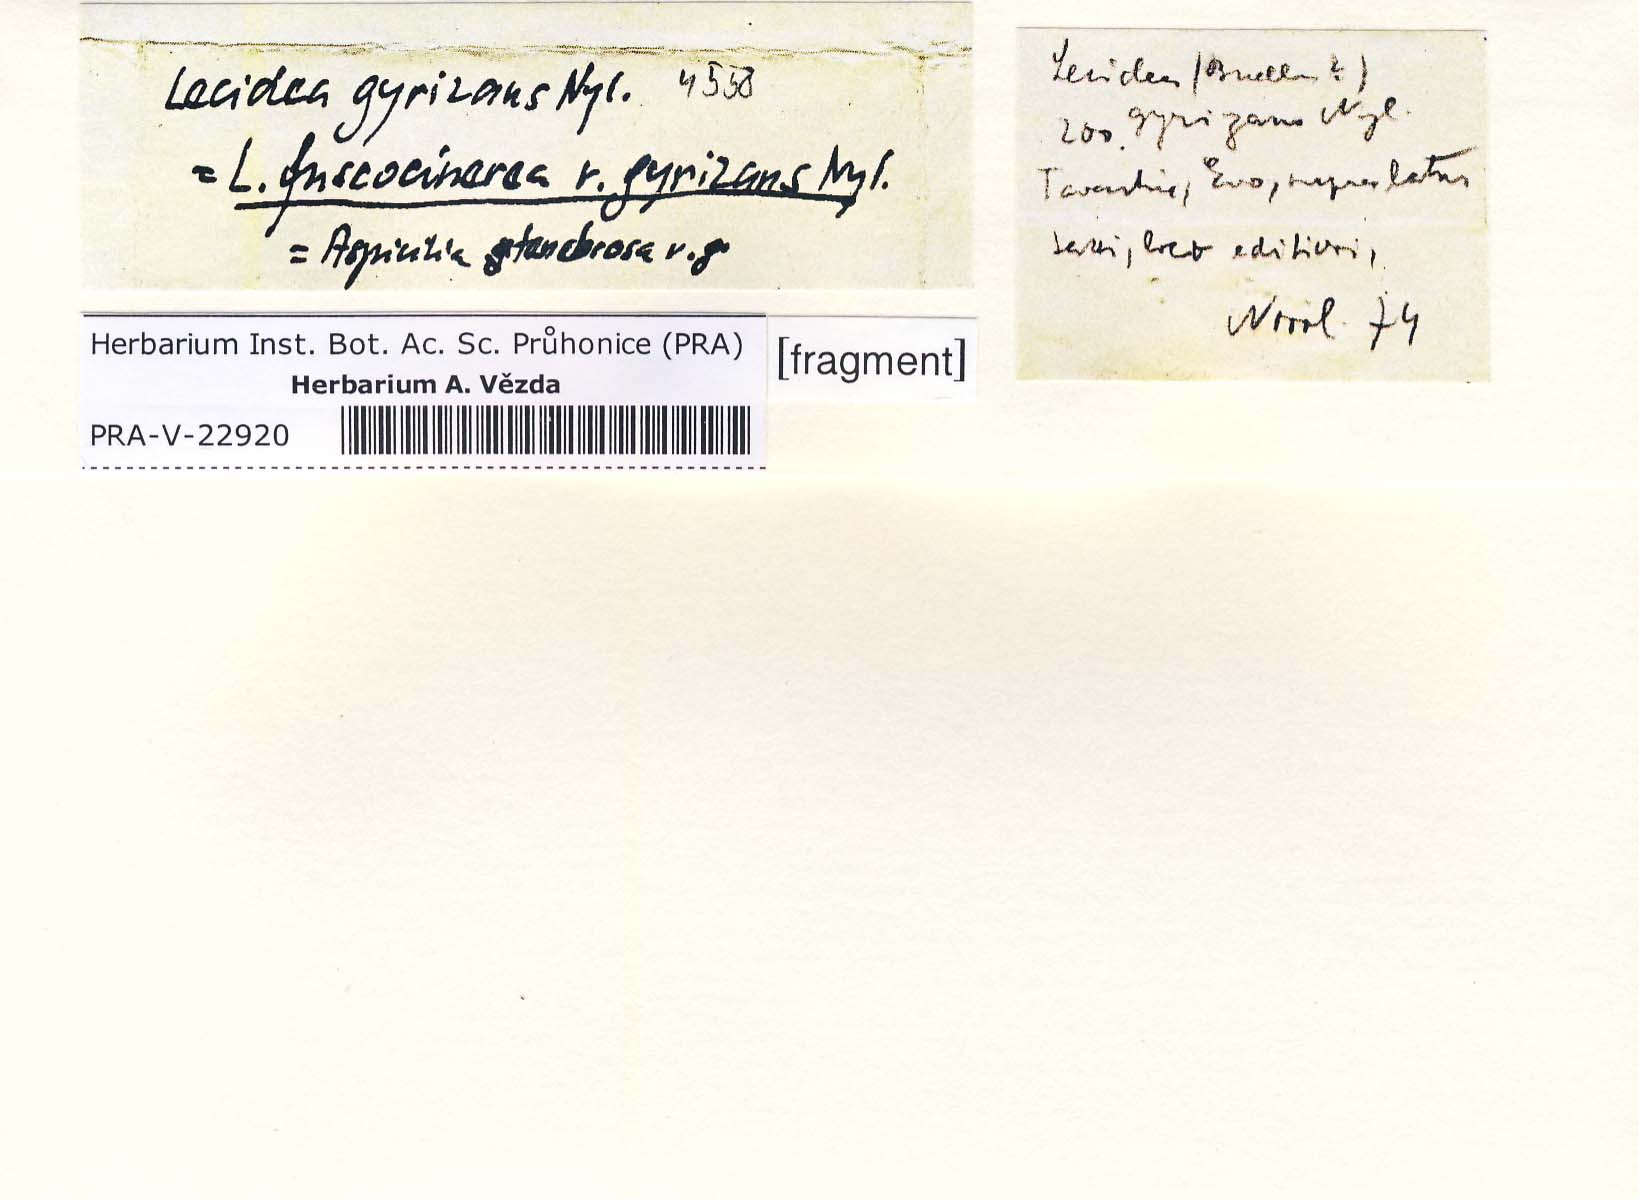 Lecidea gyrizans Nyl. 4558
= L. fuscocinerea v. gyrizans Nyl.
= Aspicilia v. g
Herbarium Inst. Bot. Ac. Sc. Průhonice (PRA)
Herbarium A. Vězda
PRA-V-22920
[fragment]
Lecidea
200. gyrizans Nyl.
Evo,
loco editiori,
Norrl. 74